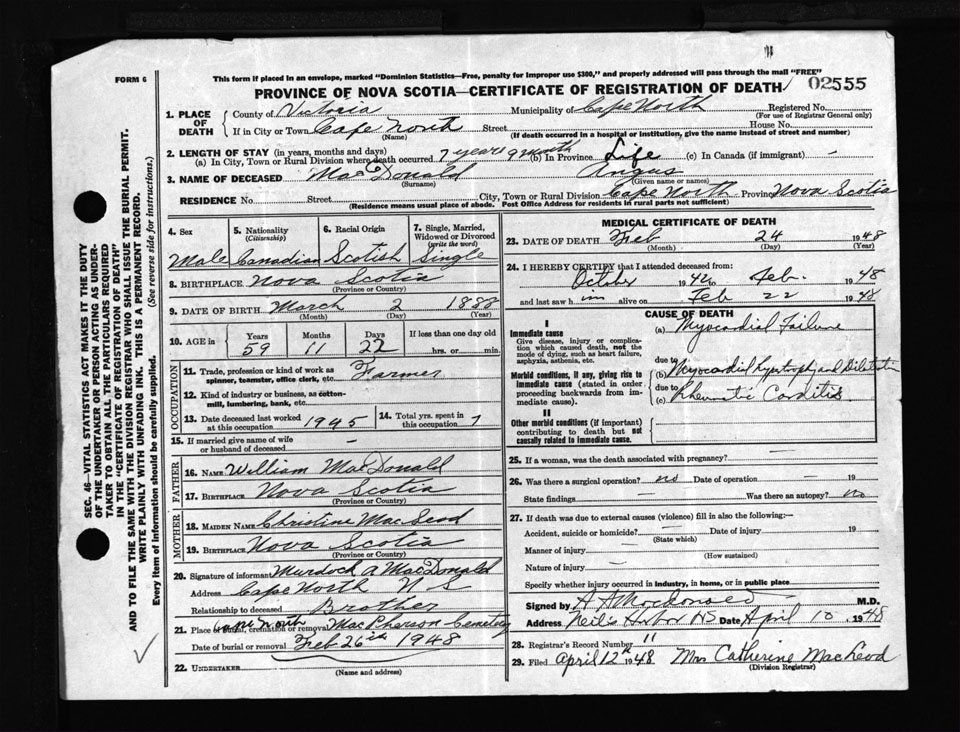 FORM 6
This form if placed in an envelope, marked "Dominion Statistics—Free, penalty for improper use $300," and properly addressed will pass through the mail "FREE"
PROVINCE OF NOVA SCOTIA—CERTIFICATE OF REGISTRATION OF DEATH 02555
SEC. 46—VITAL STATISTICS ACT MAKES IT THE DUTY
OF THE UNDERTAKER OR PERSON ACTING AS UNDER-
TAKER TO OBTAIN ALL THE PARTICULARS REQUIRED
IN THE "CERTIFICATE OF REGISTRATION OF DEATH"
AND TO FILE THE SAME WITH THE DIVISION REGISTRAR WHO SHALL ISSUE THE BURIAL PERMIT.
WRITE PLAINLY WITH UNFADING INK. THIS IS A PERMANENT RECORD.
Every item of information should be carefully supplied. (See reverse side for instructions.)
1. PLACE OF DEATH
County of Victoria Municipality of Cape North Registered No.
(For use of Registrar General only)
If in City or Town Cape North Street House No.
(Name) (If death occurred in a hospital or institution, give the name instead of street and number)
2. LENGTH OF STAY (in years, months and days)
(a) In City, Town or Rural Division where death occurred 7 years 9 month (b) In Province Life (c) In Canada (if immigrant) -
3. NAME OF DECEASED MacDonald Angus
(Surname) (Given name or names)
RESIDENCE No. Street City, Town or Rural Division Cape North Province Nova Scotia
(Residence means usual place of abode. Post Office Address for residents in rural parts not sufficient)
4. Sex
Male
5. Nationality
(Citizenship)
Canadian
6. Racial Origin
Scotish
7. Single, Married,
Widowed or Divorced
(write the word)
Single
8. BIRTHPLACE Nova Scotia
(Province or Country)
9. DATE OF BIRTH March 2 1888
(Month) (Day) (Year)
10. AGE in
Years Months Days If less than one day old
59 11 22 hrs. or min.
OCCUPATION
11. Trade, profession or kind of work as
spinner, teamster, office clerk, etc. Farmer
12. Kind of industry or business, as cotton-
mill, lumbering, bank, etc.
13. Date deceased last worked
at this occupation 1945
14. Total yrs. spent in
this occupation 7
15. If married give name of wife
or husband of deceased -
FATHER
16. NAME William MacDonald
17. BIRTHPLACE Nova Scotia
(Province or Country)
MOTHER
18. MAIDEN NAME Christine MacLeod
19. BIRTHPLACE Nova Scotia
(Province or Country)
20. Signature of informant Murdock A MacDonald
Address Cape North N S
Relationship to deceased Brother
21. Place of burial, cremation or removal Cape North MacPherson Cemetery
Date of burial or removal Feb 26th 1948
22. UNDERTAKER
(Name and address)
MEDICAL CERTIFICATE OF DEATH
23. DATE OF DEATH Feb 24 1948
(Month) (Day) (Year)
24. I HEREBY CERTIFY that I attended deceased from:
October 1942 to Feb. 1948
and last saw him alive on Feb 22 1948
CAUSE OF DEATH
I
Immediate cause
Give disease, injury or complica-
tion which caused death, not the
mode of dying, such as heart failure,
asphyxia, asthenia, etc.
(a) Myocardial Failure
due to
Morbid conditions, if any, giving rise to
immediate cause (stated in order
proceeding backwards from im-
mediate cause).
(b) Myocardial hypertrophy and Dilatation
due to
(c) Rheumatic Carditis
II
Other morbid conditions (if important)
contributing to death but not
causally related to immediate cause.
25. If a woman, was the death associated with pregnancy? —
26. Was there a surgical operation? no Date of operation - 19
State findings — Was there an autopsy? no
27. If death was due to external causes (violence) fill in also the following:—
Accident, suicide or homicide? — Date of injury 19
(State which)
Manner of injury —
(How sustained)
Nature of injury —
Specify whether injury occurred in industry, in home, or in public place
Signed by A A Macdonald M.D.
Address Neil's Harbor NS Date April 10 1948
28. Registrar's Record Number 11
29. Filed April 12th 1948 Mrs Catherine MacLeod
(Division Registrar)